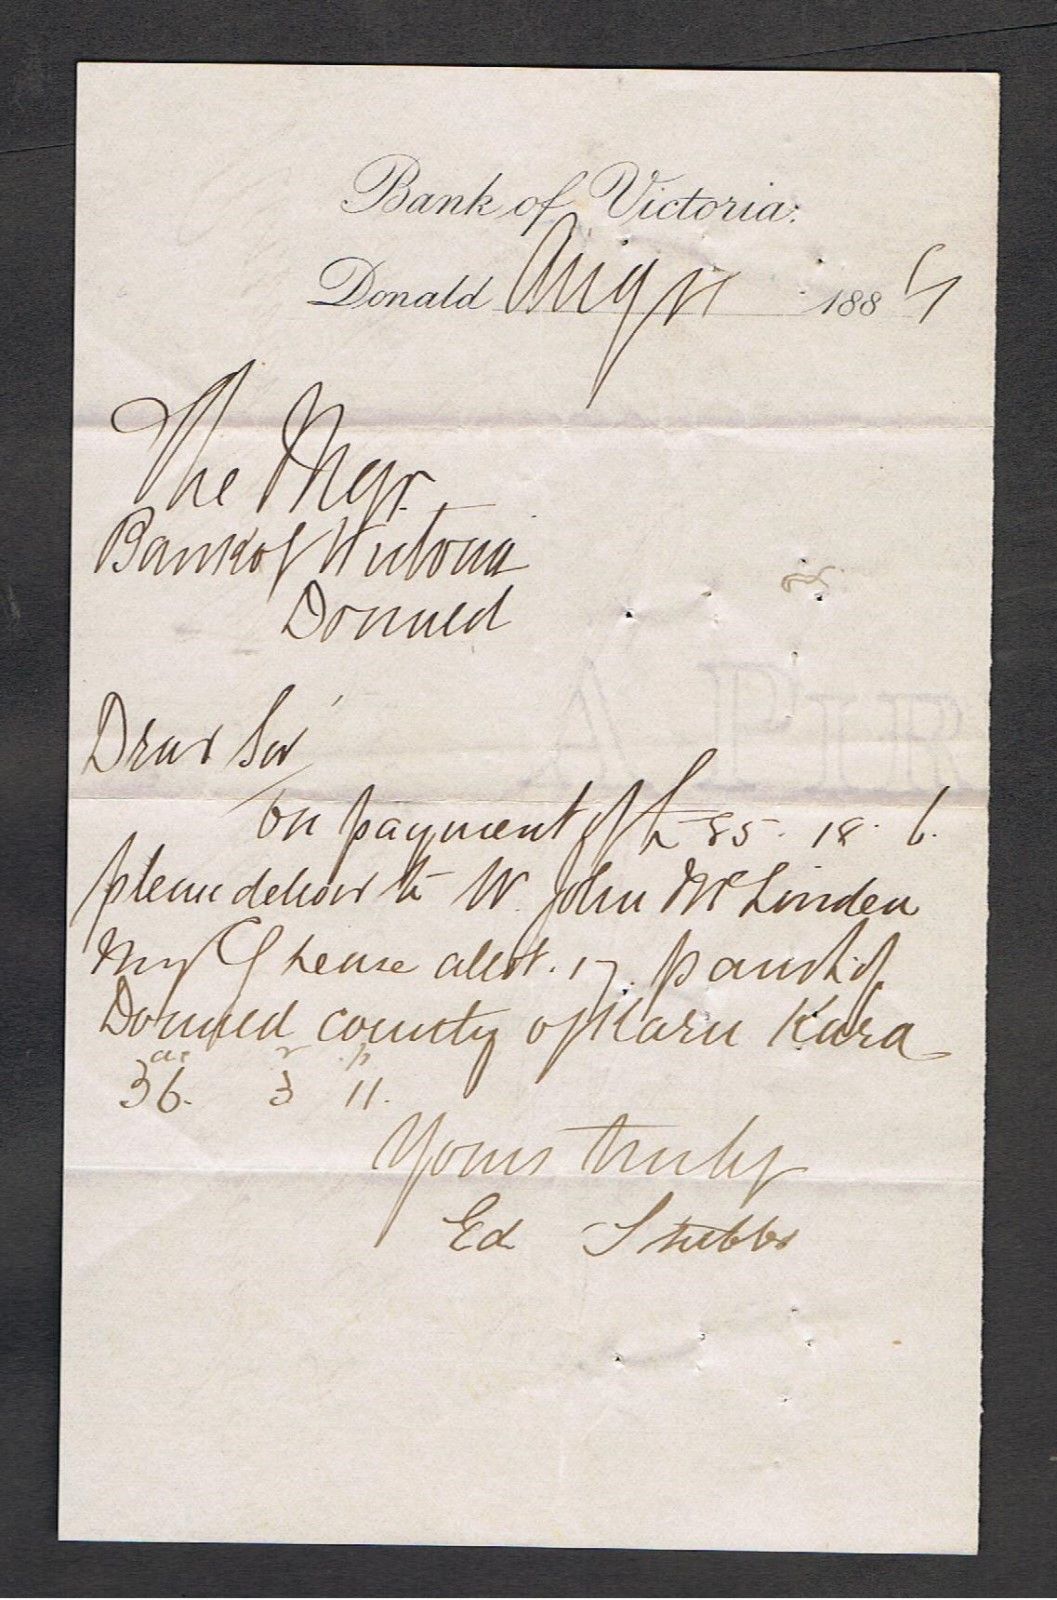 Bank of Victoria.
Donald Augt 11 188
The Mgr.
Bank of Victoria
Donald
Dear Sir
On payment of £85. 18. 6.
please deliver to John McLinden
my lease allot. 17. parish of
Donald county of Kara Kara
ac r p
36. 3 11.
Yours truly
Ed Stubbs